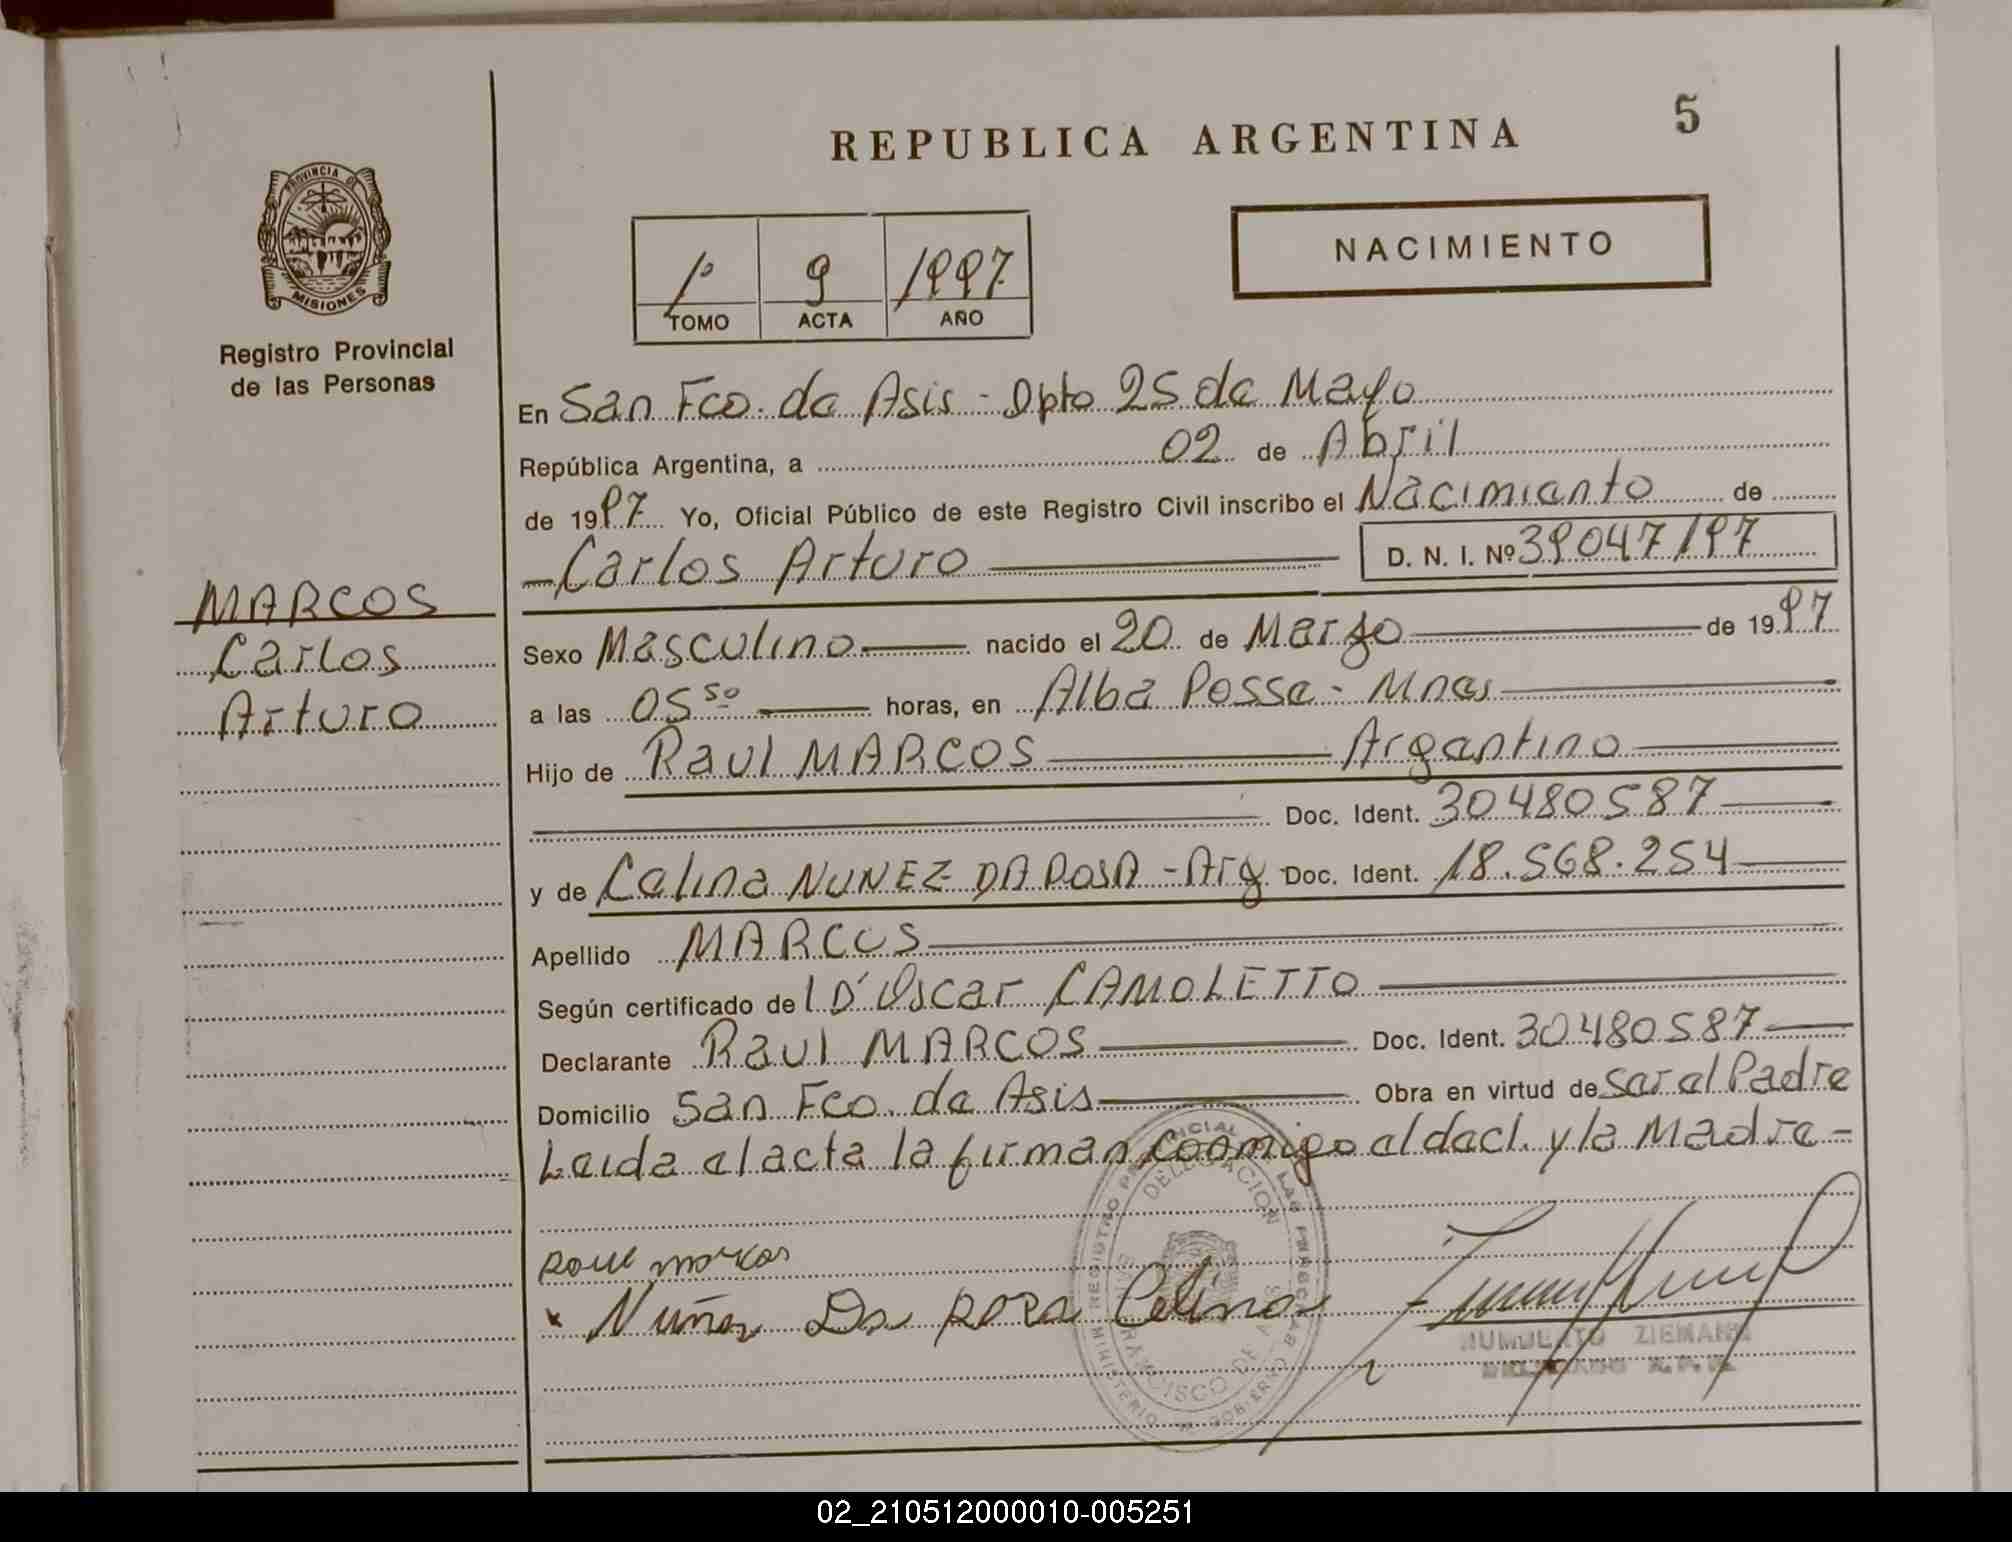 REPUBLICA ARGENTINA
5
PROVINCIA DE
MISIONES
Registro Provincial
de las Personas
NACIMIENTO
1º 9 1997
TOMO ACTA AÑO
En San Fco. de Asis - Dpto 25 de Mayo
República Argentina, a 02 de Abril
de 1997 Yo, Oficial Público de este Registro Civil inscribo el Nacimiento de
Carlos Arturo D. N. I. Nº 39047197
MARCOS
Carlos
Arturo
Sexo Masculino nacido el 20 de Marzo de 1997
a las 05 50 horas, en Alba Posse - Mnes
Hijo de Raul MARCOS Argentino
Doc. Ident. 30480587
y de Celina NUNEZ DA ROSA - Arg Doc. Ident. 18.568.254
Apellido MARCOS
Según certificado de I.D' Oscar CAMOLETTO
Declarante Raul MARCOS Doc. Ident. 30480587
Domicilio San Fco. de Asis Obra en virtud de ser el Padre
Leida el acta la firman conmigo el decl. y la Madre-
Nuñez Da Rosa Celina
DELEGACION
ZIEMANN
02_210512000010-005251